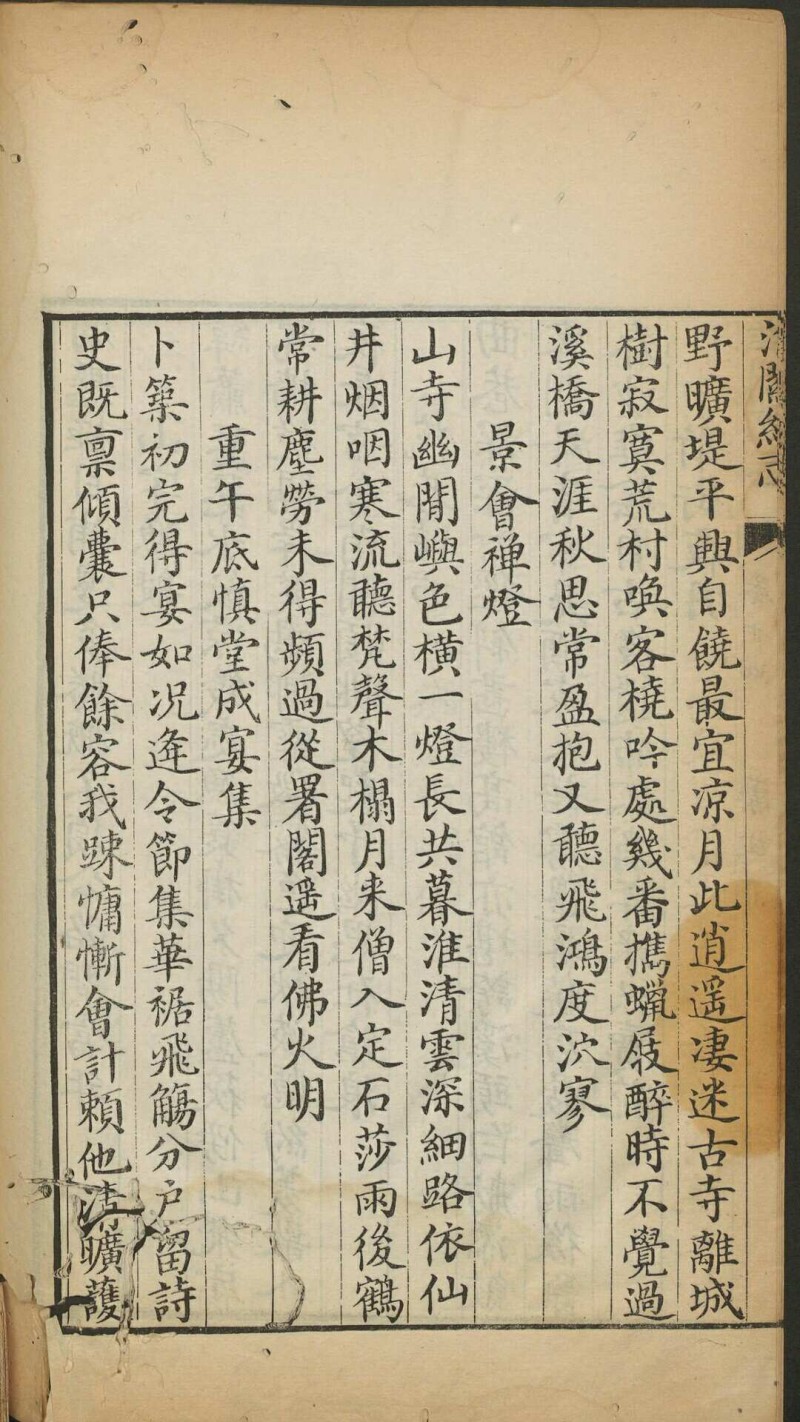 野曠堤平興自饒最宜凉月此逍遥凄迷古寺離城
樹寂寞荒村喚客橈吟處幾番攜蠟屐醉時不覺過
溪橋天涯秋思常盈抱又聽飛鴻度泬寥
景會禅燈
山寺幽閒嶼色横一燈長共暮淮清雲深細路依仙
井烟咽寒流聽梵聲木榻月来僧入定石莎雨後鶴
常耕塵勞未得頻過從署閣遥看佛火明
重午底慎堂成宴集
卜築初完得宴如况逢令節集華裾飛觴分户留詩
史既禀傾囊只俸餘容我踈慵慚會計賴他清曠護